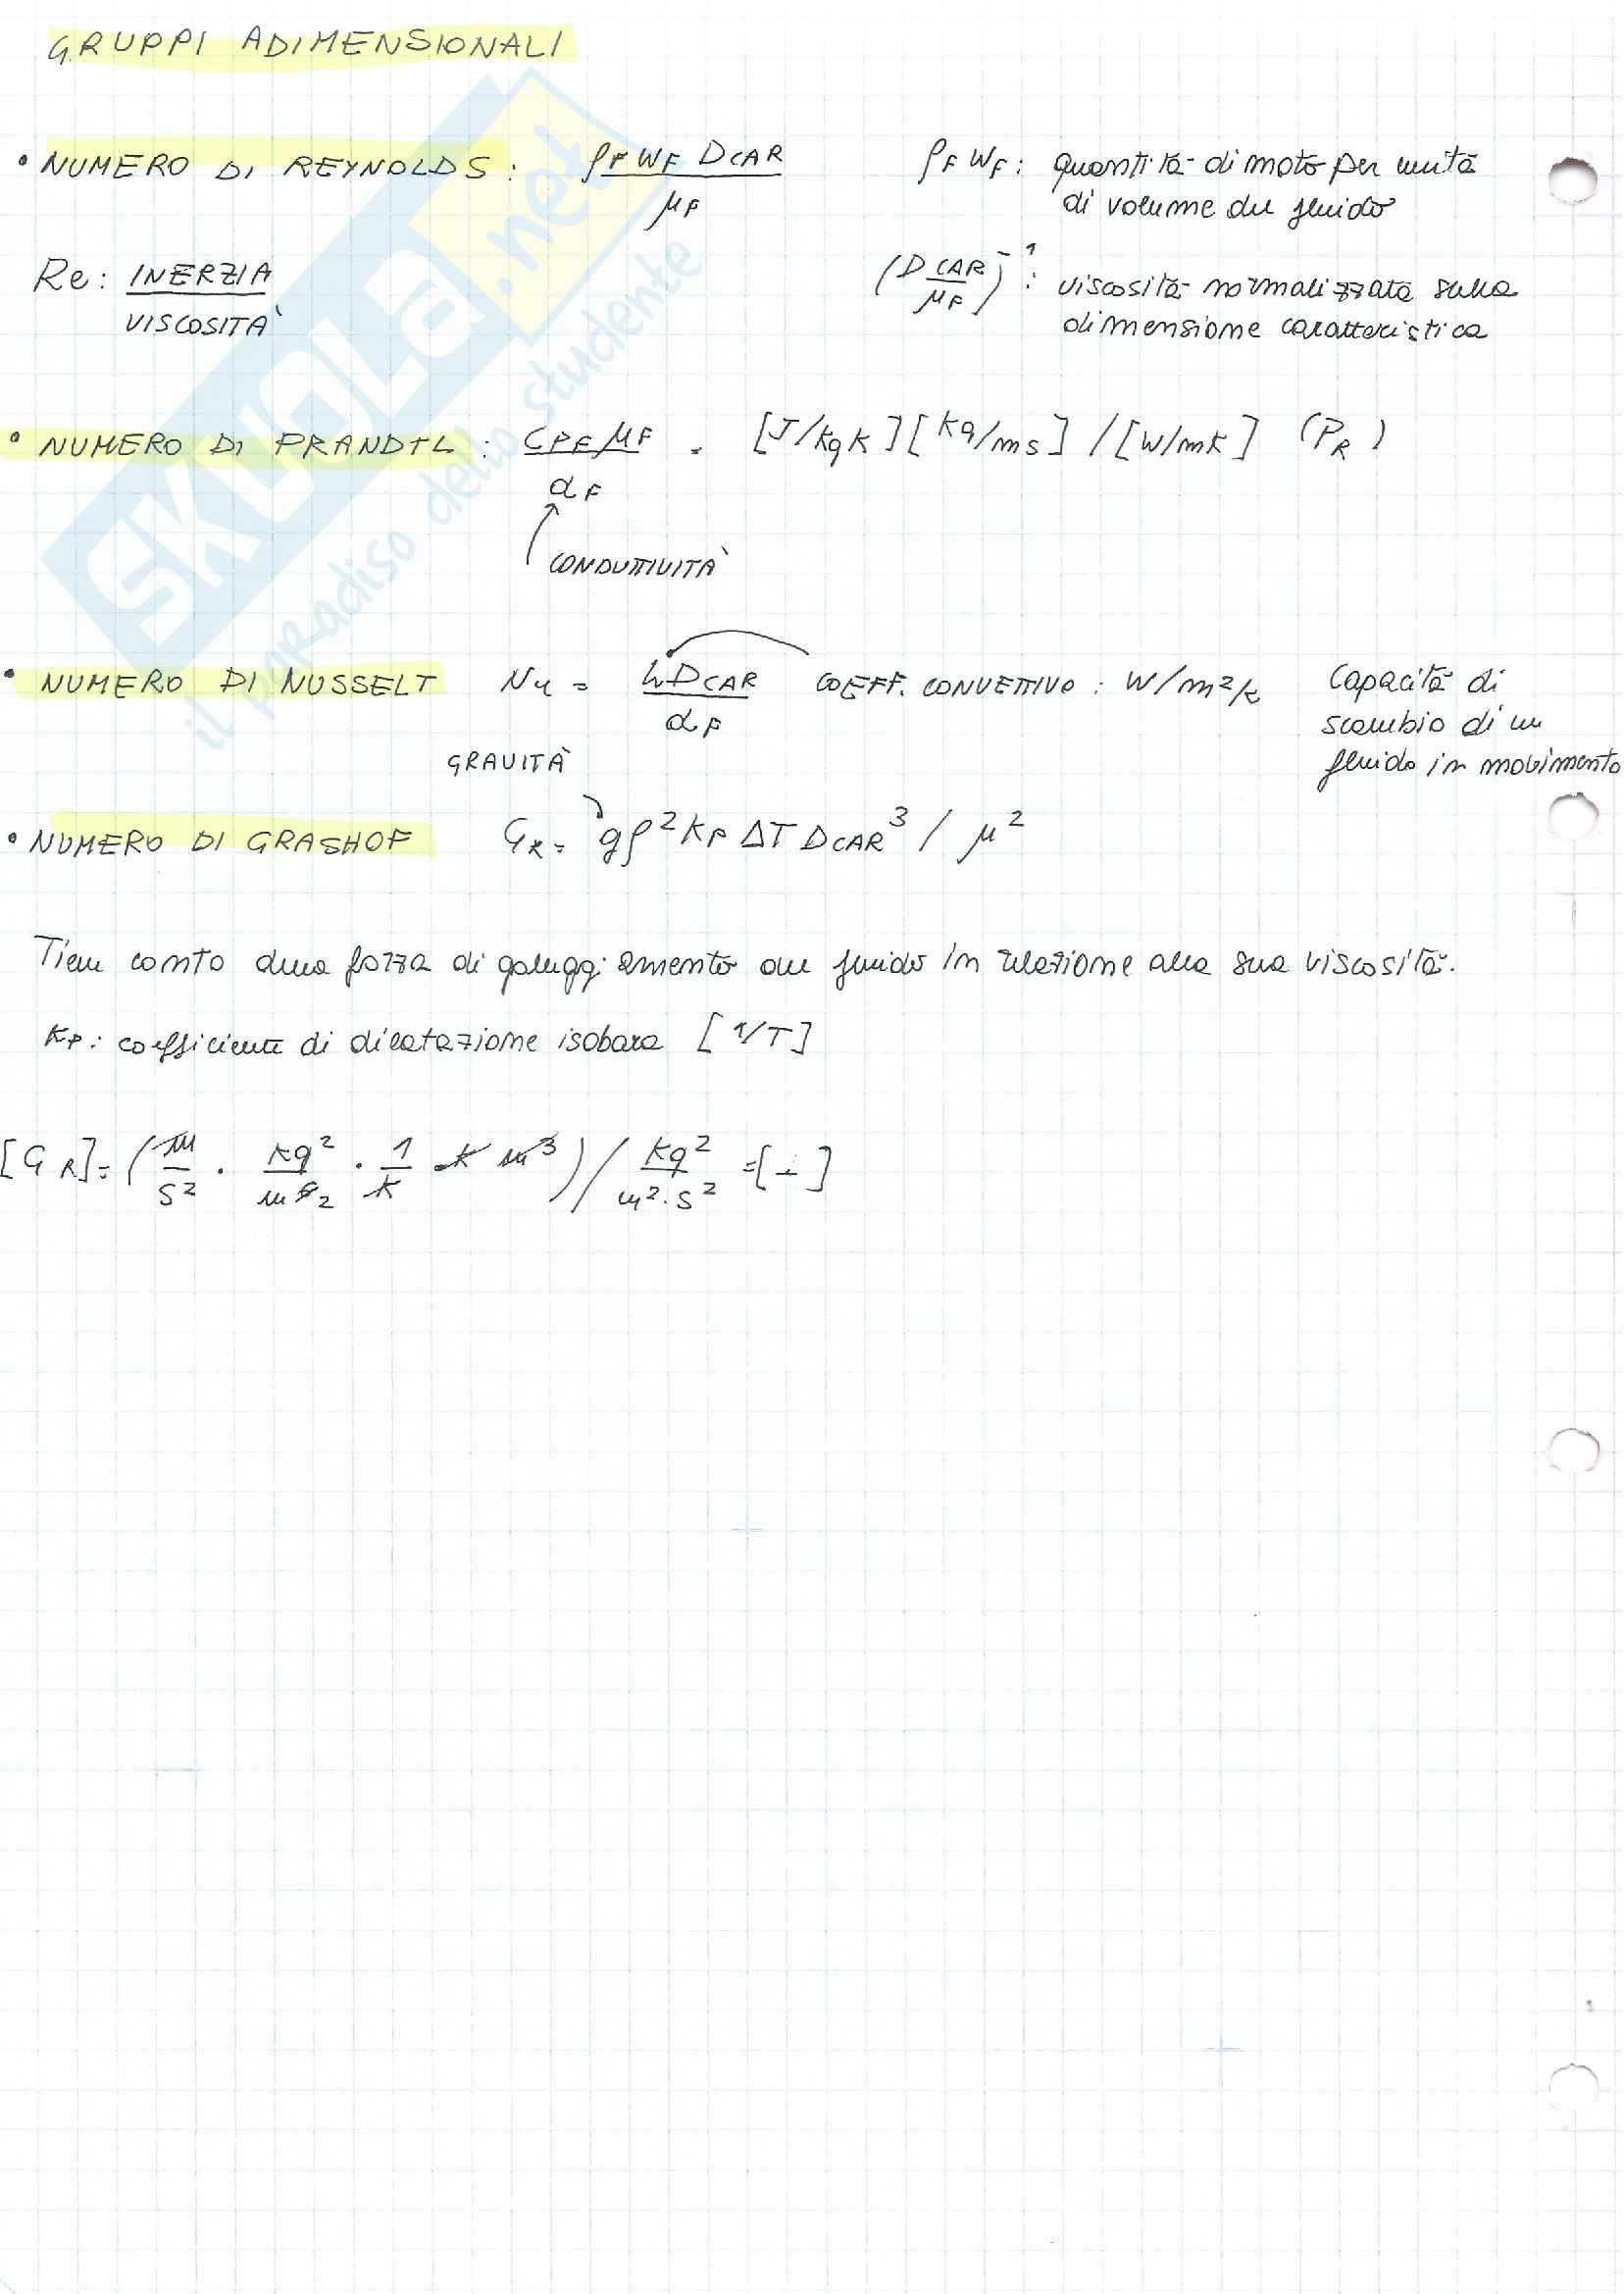 GRUPPI ADIMENSIONALI
• NUMERO DI REYNOLDS : ρF WF DCAR / μF
ρF WF : quantità di moto per unità
di volume del fluido
Re : INERZIA / VISCOSITÀ
(DCAR / μF)⁻¹ : viscosità normalizzata sulla
dimensione caratteristica
• NUMERO DI PRANDTL : CPF μF / αF . [J/kgK][kg/ms] / [W/mK] (PR)
CONDUTTIVITÀ
• NUMERO DI NUSSELT Nu = h DCAR / αF COEFF. CONVETTIVO : W/m²k
Capacità di
scambio di un
fluido in movimento
GRAVITÀ
• NUMERO DI GRASHOF GR = gρ² KP ΔT DCAR³ / μ²
Tiene conto della forza di galleggiamento del fluido in relazione alla sua viscosità.
KP : coefficiente di dilatazione isobara [1/T]
[GR] = (m/s² · kg²/m⁶ · 1/K · K m³) / kg²/m²·s² = [-]
SKUOLA.net
il paradiso dello studente